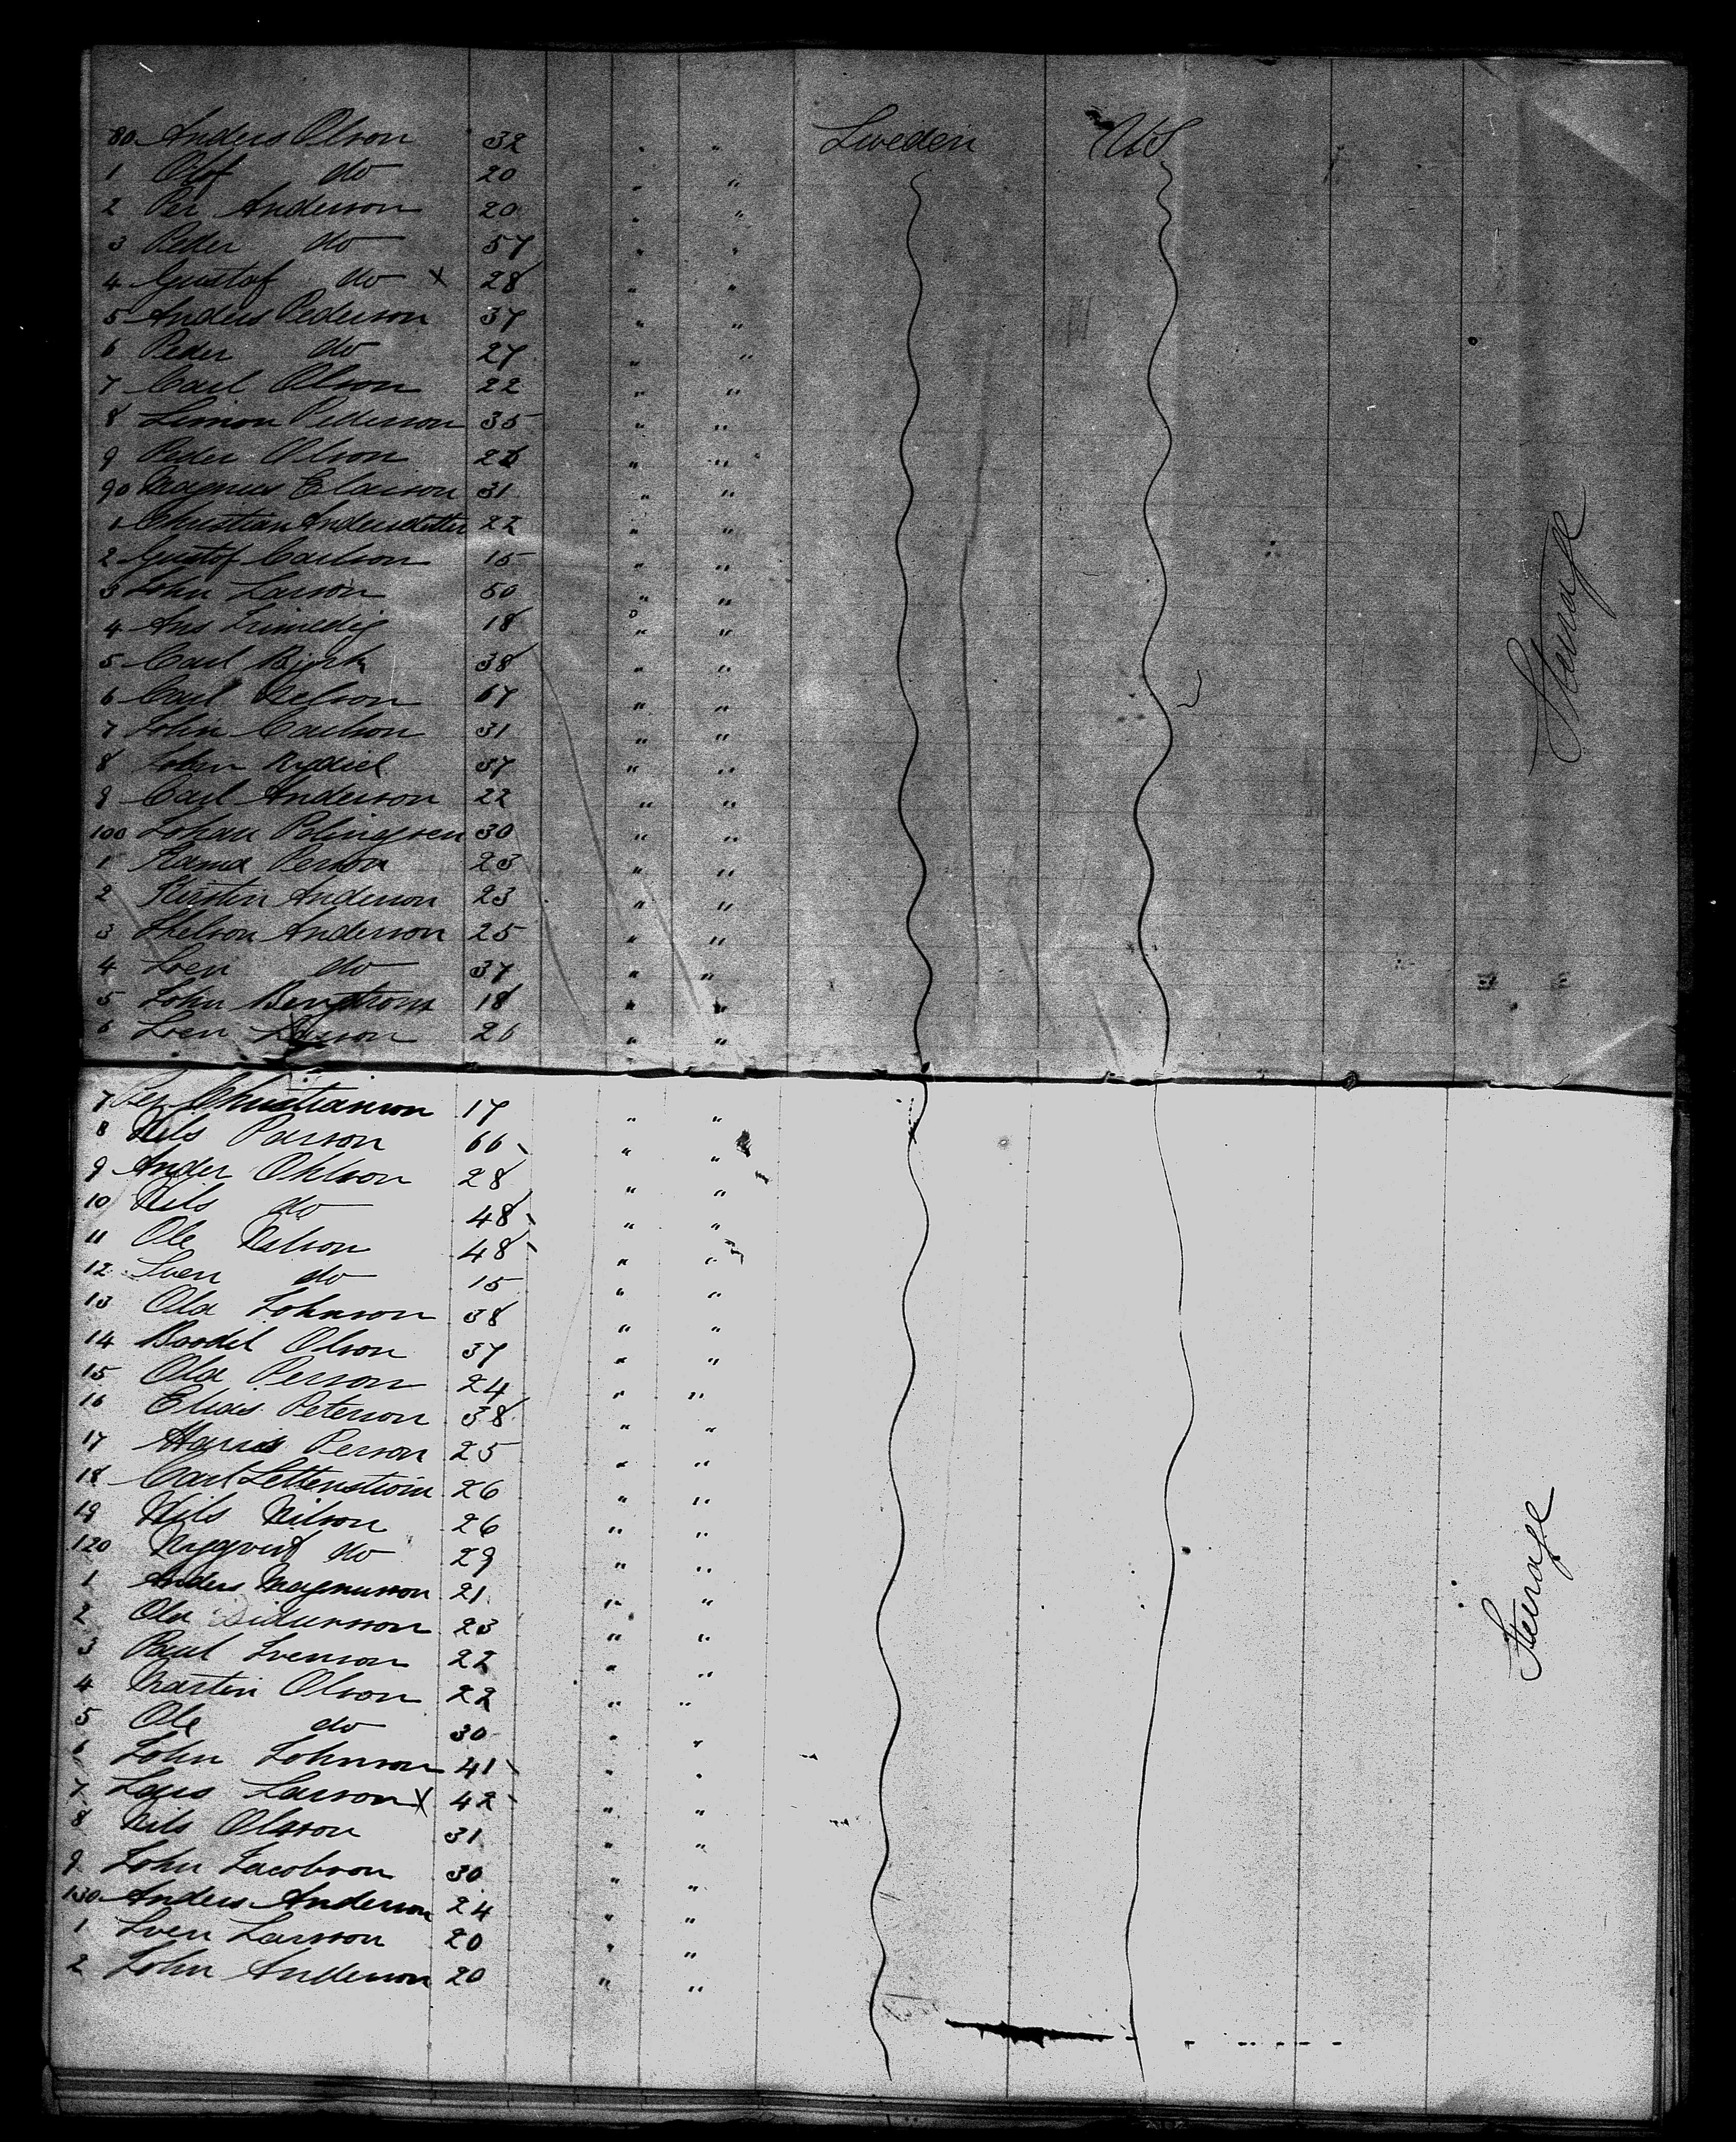 80 Anders Olson 32 " " Sweden US
1 Olof do 20 " "
2 Per Anderson 20 " "
3 Peder do 57 " "
4 Gustaf do X 28 " "
5 Anders Pederson 37 " "
6 Peder do 27 " "
7 Carl Olson 22 " "
8 Simon Petterson 35 " "
9 Peder Olson " "
90 Magnus Elaison 31 " "
1 Christian Andersdotter 22 " "
2 Gustof Carlson 15 " "
3 John Larson 50 " "
4 18 " "
5 Carl Bjork 38 " "
6 Carl Nelson 67 " "
7 John Carlson 31 " "
8 John 37 " "
9 Carl Anderson 22 " "
100 Johan 30 " "
1 Person 23 " "
2 Kirstin Anderson 23 " "
3 Anderson 25 " "
4 Sven do 37 " "
5 John Bengtrom 18 " "
6 Sven Larson 26 " "
7 Per Christianson 17 " "
8 Nils Parson 66 " "
9 Ander Ohlson 28 " "
10 Nils do 48 " "
11 Ole Nilson 48 " "
12 Sven do 15 " "
13 Ola Johnson 38 " "
14 Boodel Olson 37 " "
15 Ola Person 24 " "
16 Elias Peterson 38 " "
17 Person 25 " "
18 Carl 26 " "
19 Nils Nilson 26 " "
120 do 29 " "
1 Anders Magnusson 21 " "
2 Ola 23 " "
3 Paul Svenson 22 " "
4 Martin Olson 22 " "
5 Ole do 30 " "
6 John Johnson 41 " "
7 Lars Larson X 42 " "
8 Nils Olsson 31 " "
9 John Jacobson 30 " "
130 Anders Anderson 24 " "
1 Sven Larsson 20 " "
2 John Anderson 20 " "
Steerage
Steerage